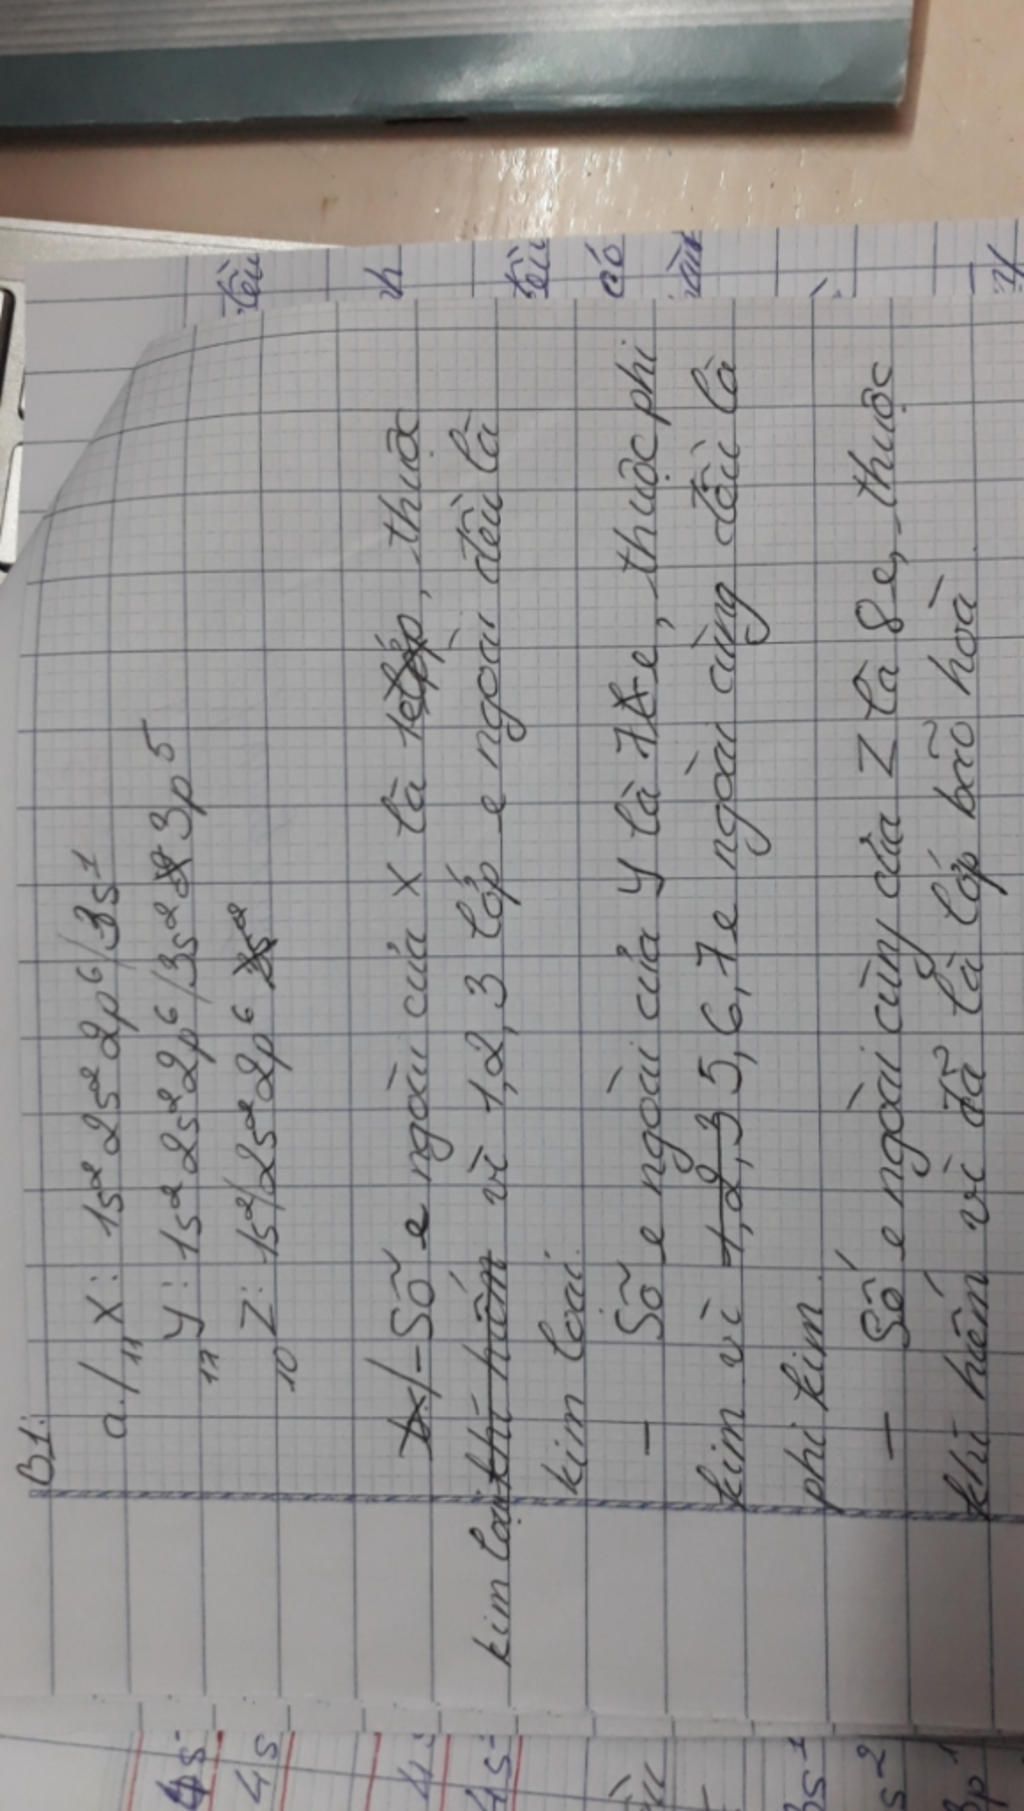 B1:
a./ ₁₁X: 1s² 2s² 2p⁶/3s¹
₁₇Y: 1s² 2s² 2p⁶/3s² 3p⁵
₁₀Z: 1s²/2s² 2p⁶
b/- Số e ngoài của X là 1e, thuộc
kim loại khí hiếm vì 1,2,3 lớp e ngoài đều là
kim loại.
- Số e ngoài của Y là 7 e, thuộc phi
kim vì 1,2,3 5,6,7e ngoài cùng đều là
phi kim.
- Số e ngoài cùng của Z là 8e, thuộc
khí hiếm vì đã là lớp bão hoà.
đều
h
đều
có
4s
4s
4s
3s¹
s²
3p¹